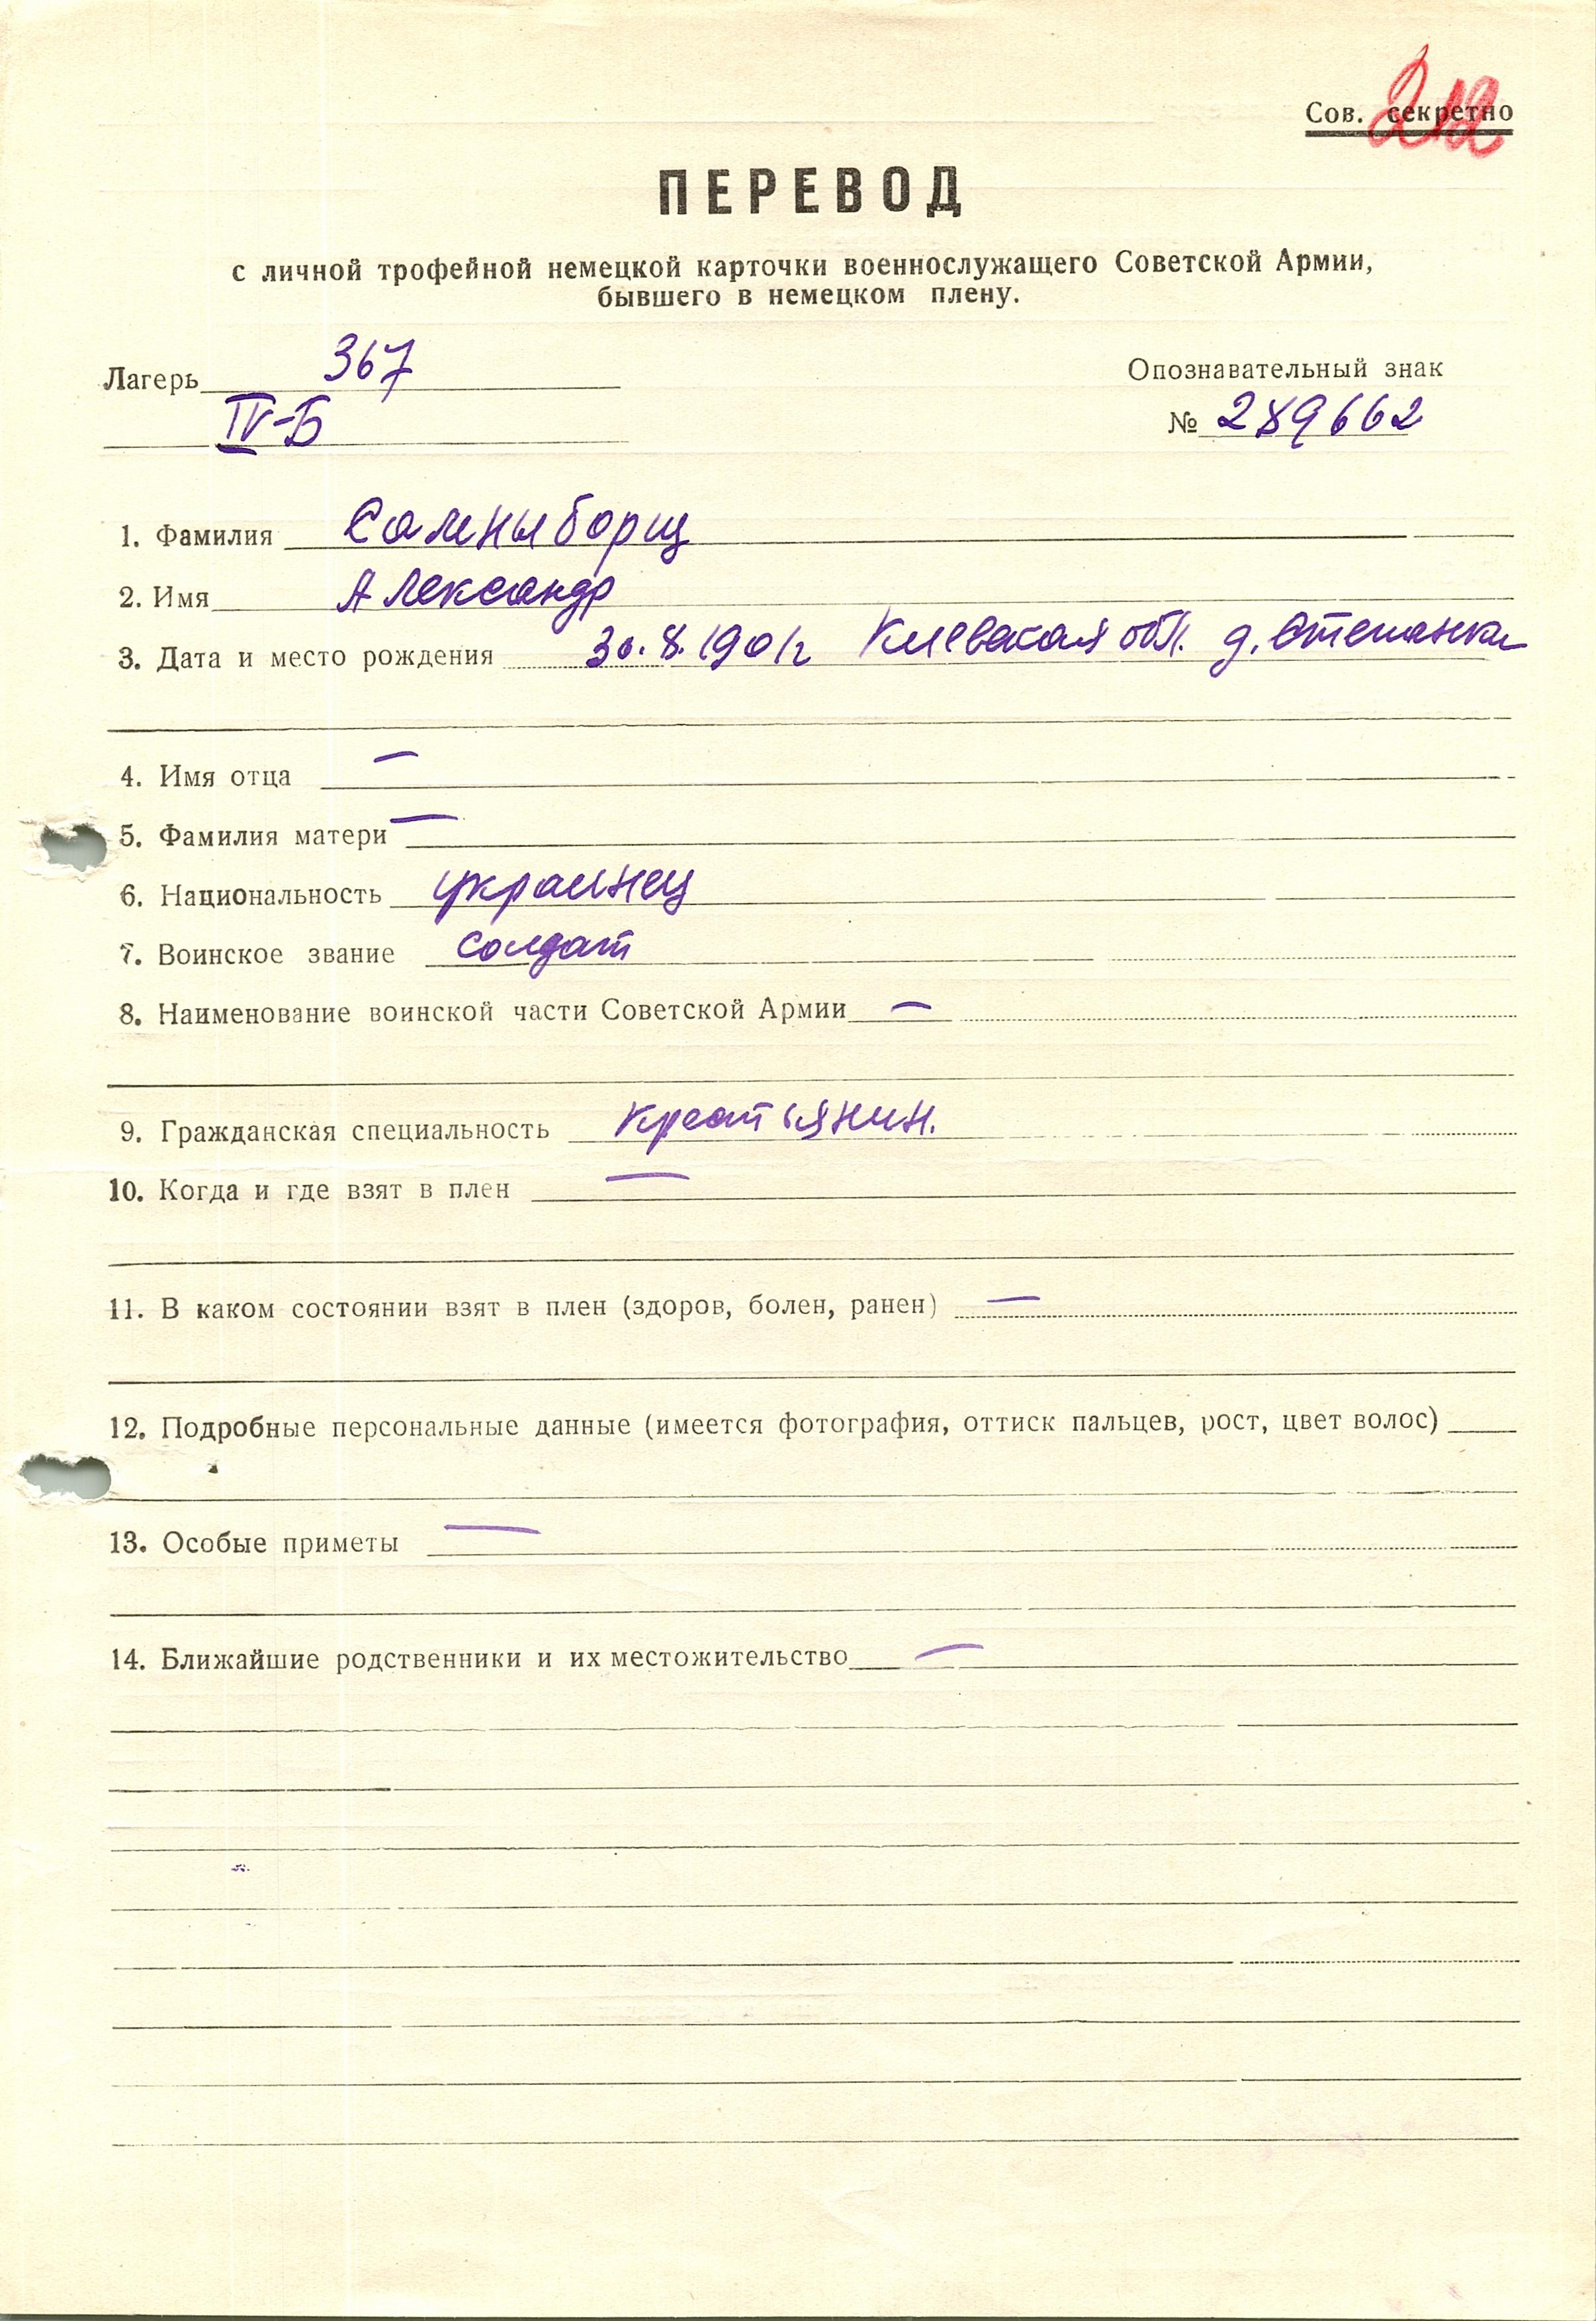 Сов. секретно
212
ПЕРЕВОД
с личной трофейной немецкой карточки военнослужащего Советской Армии,
бывшего в немецком плену.
Лагерь 367
IV-Б
Опознавательный знак
№ 289662
1. Фамилия Солныборщ
2. Имя Александр
3. Дата и место рождения 30.8.1901г Киевская обл. д. Степанка
4. Имя отца —
5. Фамилия матери —
6. Национальность украинец
7. Воинское звание солдат
8. Наименование воинской части Советской Армии —
9. Гражданская специальность крестьянин.
10. Когда и где взят в плен —
11. В каком состоянии взят в плен (здоров, болен, ранен) —
12. Подробные персональные данные (имеется фотография, оттиск пальцев, рост, цвет волос)
13. Особые приметы —
14. Ближайшие родственники и их местожительство —